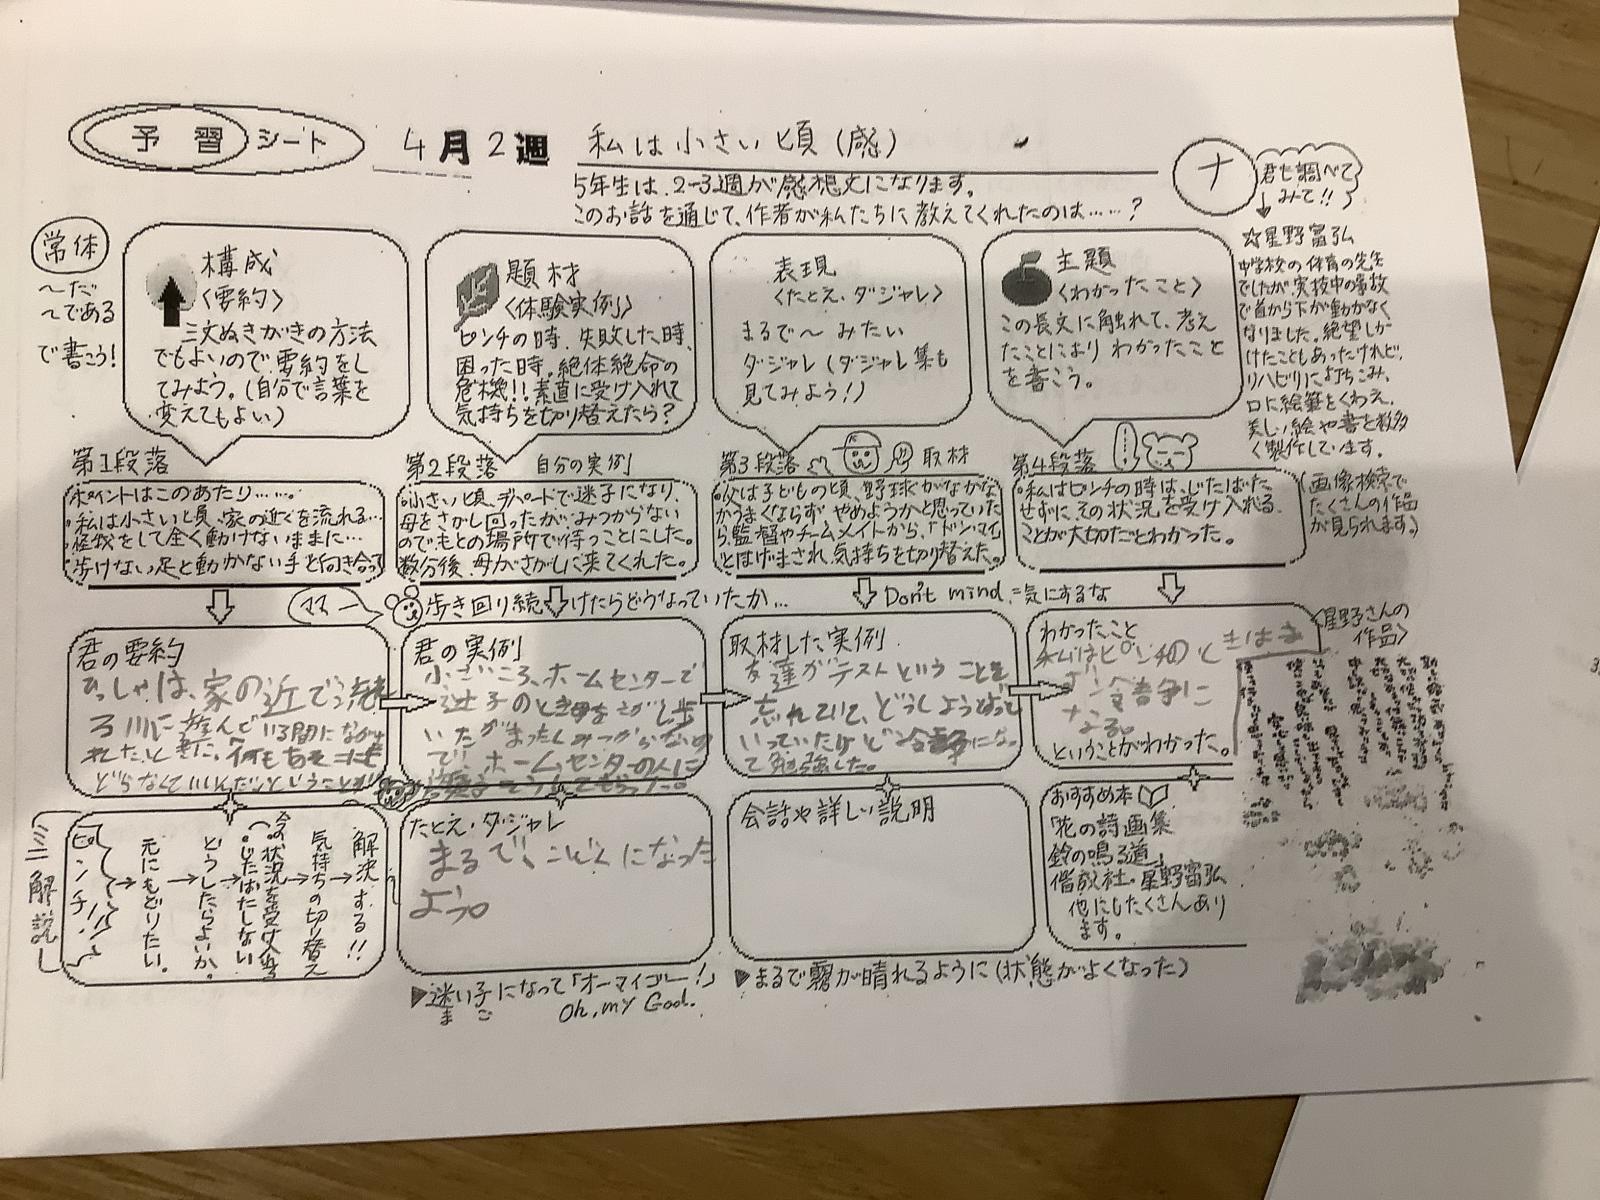 予習シート 4月2週 私は小さい頃(感)
ナ
君も調べて
みて!!
5年生は、2-3週が感想文になります。
このお話を通じて、作者が私たちに教えてくれたのは……?
常体
~だ
~である
で書こう!
構成
〈要約〉
三文ぬきがきの方法
でもよいので要約をし
てみよう。(自分で言葉を
変えてもよい)
題材
〈体験実例〉
ピンチの時、失敗した時、
困った時。絶体絶命の
危機!!素直に受け入れて
気持ちを切り替えたら?
表現
〈たとえ・ダジャレ〉
まるで~みたい
ダジャレ(ダジャレ集も
見てみよう!)
主題
〈わかったこと〉
この長文に触れて、考え
たことにより わかったこと
を書こう。
☆星野富弘
中学校の体育の先生
でしたが実技中の事故
で首から下が動かなく
なりました。絶望しか
けたこともあったけれど、
リハビリに打ちこみ、
口に絵筆をくわえ、
美しい絵や書を数多
く製作しています。
(画像検索で
たくさんの作品
が見られます)
第1段落
ポイントはこのあたり……。
・私は小さい頃、家の近くを流れる…
・怪我をして全く動けないままに…
・歩けない足と動かない手と向き合って
第2段落 自分の実例
・小さい頃、デパートで迷子になり、
母をさがし回ったがみつからない
のでもとの場所で待つことにした。
数分後、母がさがしに来てくれた。
第3段落 取材
・父は子どものころ、野球がなかな
かうまくならず やめようかと思っていた
ら、監督やチームメイトから、「ドンマイ」
とはげまされ、気持ちを切り替えた。
第4段落
・私はピンチの時は、じたばた
せずに その状況を受け入れる
ことが大切だとわかった。
ママー
歩き回り続けたらどうなっていたか…
Don't mind.=気にするな
君の要約
ひっしゃは、家の近でっ流
る川に遊んで いる間にながさ
れたとき
君の実例
小さいころ、ホームセンターで
迷子のとき母をさがし歩
いたがまったくみつからないの
で、ホームセンターの人に
取材した実例
友達がテストということを
忘れていて、どうしようどって
いっていたけど冷静になっ
て勉強した。
わかったこと
私はピンチのときはまず
冷静に
なる。
ということがわかった。
〈星野さんの
作品〉
ミニ解説
ピンチ!!
→元にもどりたい。
→どうしたらよいか。
→今の状況を受け入れる
(じたばたしない
→気持ちの切り替え
→解決する!!
たとえ・ダジャレ
まるで、こどくになった
よう。
会話や詳しい説明
おすすめ本
「花の詩画集
鈴の鳴る道」
偕成社・星野富弘
他にもたくさんあり
ます。
▶迷い子になって「オーマイゴー!」
まご
Oh, my God.
▶まるで霧が晴れるように(状態がよくなった)